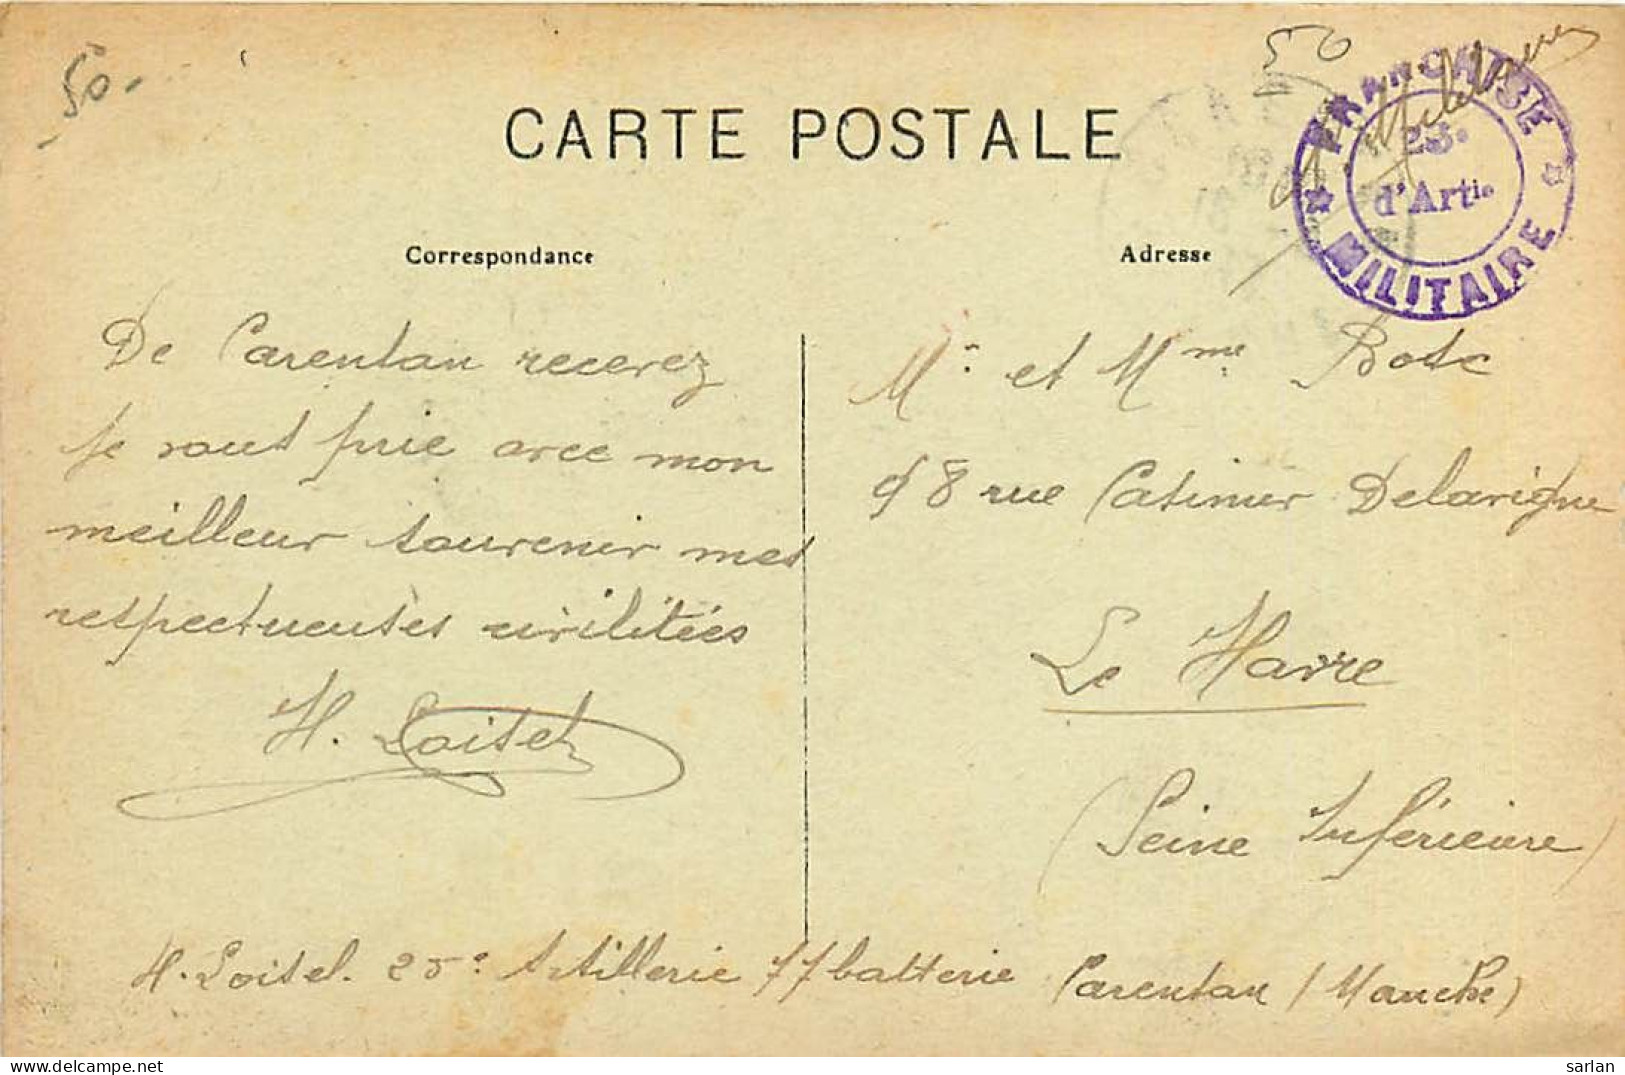 50.-
50
CARTE POSTALE
FRANCHISE MILITAIRE
d'Artie
Correspondance
Adresse
De Carentan recevez
je vous prie avec mon
meilleur souvenir mes
respectueuses civilitées
H. Loisel
Mr et Mme Bosc
98 rue Casimir Delavigne
Le Havre
(Seine Inférieure)
H. Loisel. 25e Artillerie 77 batterie Carentan (Manche)
delcampe.net
sarlan